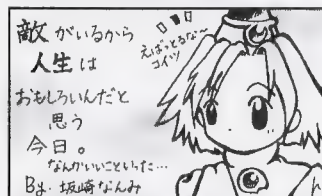 敵がいるから
人生は
おもしろいんだと
思う
今日。
なんかいいこといった…
By.坂崎なんみ
えばっとるな〜
コイツ